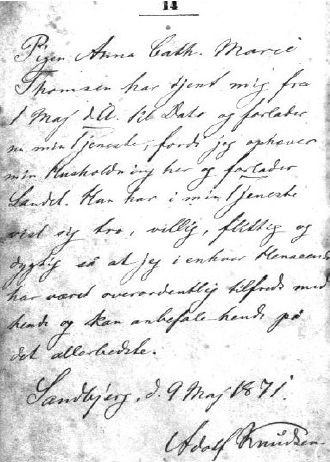 14
Pigen Anna Cath. Marie
Thomsen har tjent mig fra
1 Maj d.A. til Dato og forlader
nu min Tjeneste, fordi jeg ophæver
min Husholdning her og forlader
Landet. Hun har i min Tjeneste
vist sig tro, villig, flittig og
dygtig så at jeg i enhver Henseende
har været overordentlig tilfreds med
hende og kan anbefale hende på
det allerbedste.
Sandbjerg, d. 9 Maj 1871.
Adolf Knudsen